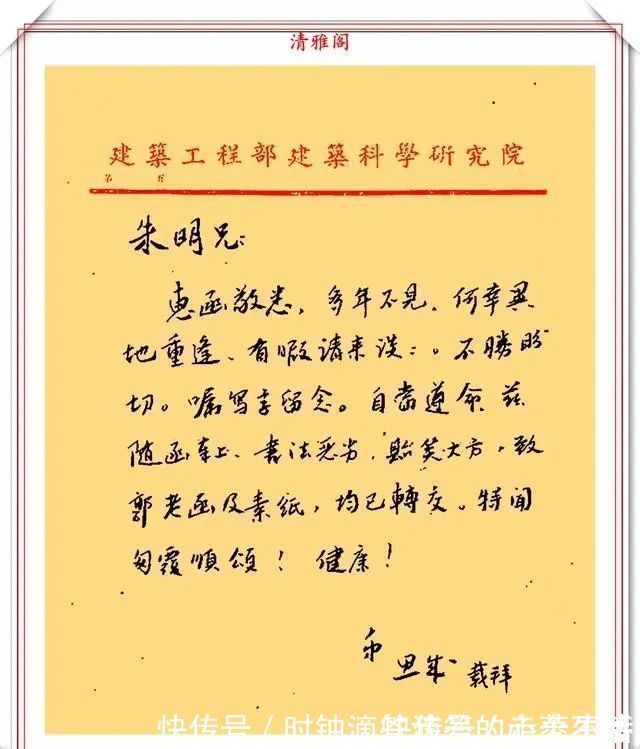 清雅阁
建築工程部建築科學硏究院
第
朱明兄:
惠函敬悉,多年不見、何幸異
地重逢、有暇請来谈:。不勝盼
切。嘱写字留念。自當遵命 兹
随函奉上、書法恶劣,貽笑大方,致
郭老函及素紙,均已轉交。特聞
匆覆順頌!健康!
弟 思成 载拜
快传号 / 时钟滴